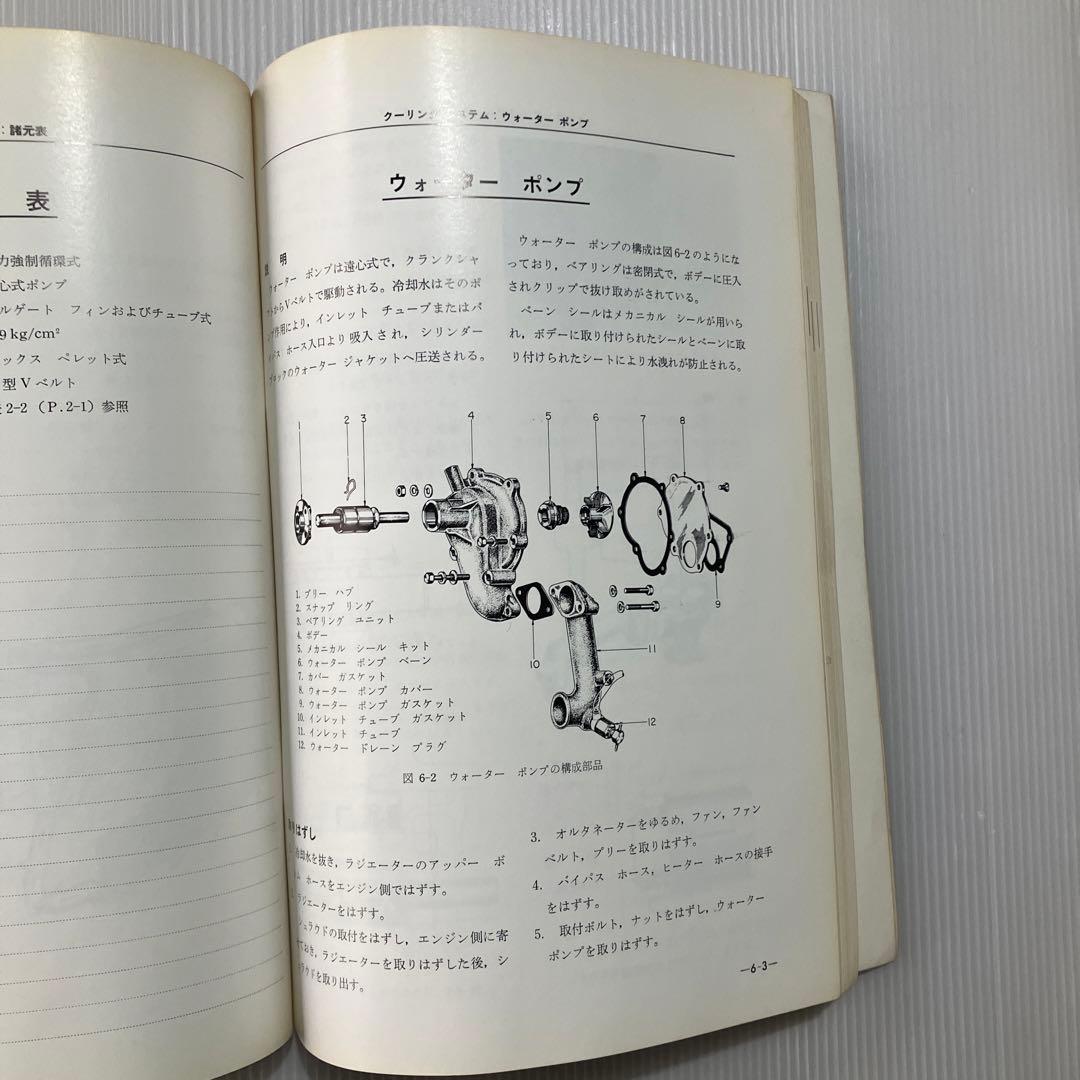 ：諸元表
表
力強制循環式
心式ポンプ
ルゲート フィンおよびチューブ式
9 kg/cm²
ックス ペレット式
型 V ベルト
2-2 （P.2-1）参照
クーリング ステム：ウォーター ポンプ
ウォーター ポンプ
説 明
ウォーター ポンプは遠心式で，クランクシャ
からVベルトで駆動される。冷却水はそのポ
作用により，インレット チューブまたはバ
ス ホース入口より吸入され，シリンダー
ブロックのウォーター ジャケットへ圧送される。
ウォーター ポンプの構成は図6-2のようにな
っており，ベアリングは密閉式で，ボデーに圧入
されクリップで抜け取めがされている。
ベーン シールはメカニカル シールが用いら
れ，ボデーに取り付けられたシールとベーンに取
り付けられたシートにより水洩れが防止される。
1 2 3 4 5 6 7 8
9
10
11
12
1. プリー ハブ
2. スナップ リング
3. ベアリング ユニット
4. ボデー
5. メカニカル シール キット
6. ウォーター ポンプ ベーン
7. カバー ガスケット
8. ウォーター ポンプ カバー
9. ウォーター ポンプ ガスケット
10. インレット チューブ ガスケット
11. インレット チューブ
12. ウォーター ドレーン プラグ
図 6-2 ウォーター ポンプの構成部品
はずし
冷却水を抜き，ラジエーターのアッパー ホ
ム ホースをエンジン側ではずす。
ラジエーターをはずす。
シュラウドの取付をはずし，エンジン側に寄
ておき，ラジエーターを取りはずした後，シ
ラウドを取り出す。
3. オルタネーターをゆるめ，ファン，ファン
ベルト，プリーを取りはずす。
4. バイパス ホース，ヒーター ホースの接手
をはずす。
5. 取付ボルト，ナットをはずし，ウォーター
ポンプを取りはずす。
—6-3—